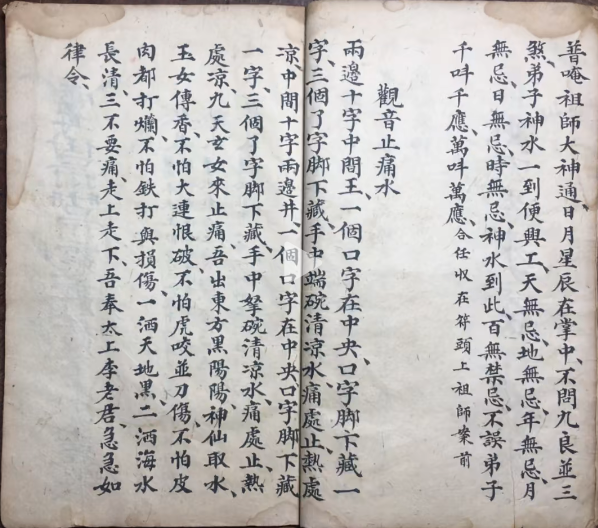 普唵祖師大神通、日月星辰在掌中、不問九良並三
煞、弟子神水一到便興工、天無忌、地無忌、年無忌、月
無忌、日無忌、時無忌、神水到此、百無禁忌、不誤弟子
千呌千應、萬呌萬應、合任收在符頭上祖師案前
觀音止痛水
兩邊十字中間王、一個口字在中央、口字脚下藏一
字、三個了字脚下藏、手中端碗清凉水、痛處止、熱處
凉、中間十字兩邊井、一個口字在中央、口字脚下藏
一字、三個了字脚下藏、手中拏碗清凉水、痛處止、熱
處凉、九天玄女來止痛、吾出東方黑陽陽、神仙取水、
玉女傳香、不怕大連恨破、不怕虎咬並刀傷、不怕皮
肉都打爛、不怕鉄打與損傷、一洒天地黑、二洒海水
長清、三不要痛走上走下、吾奉太上李老君、急急如
律令、